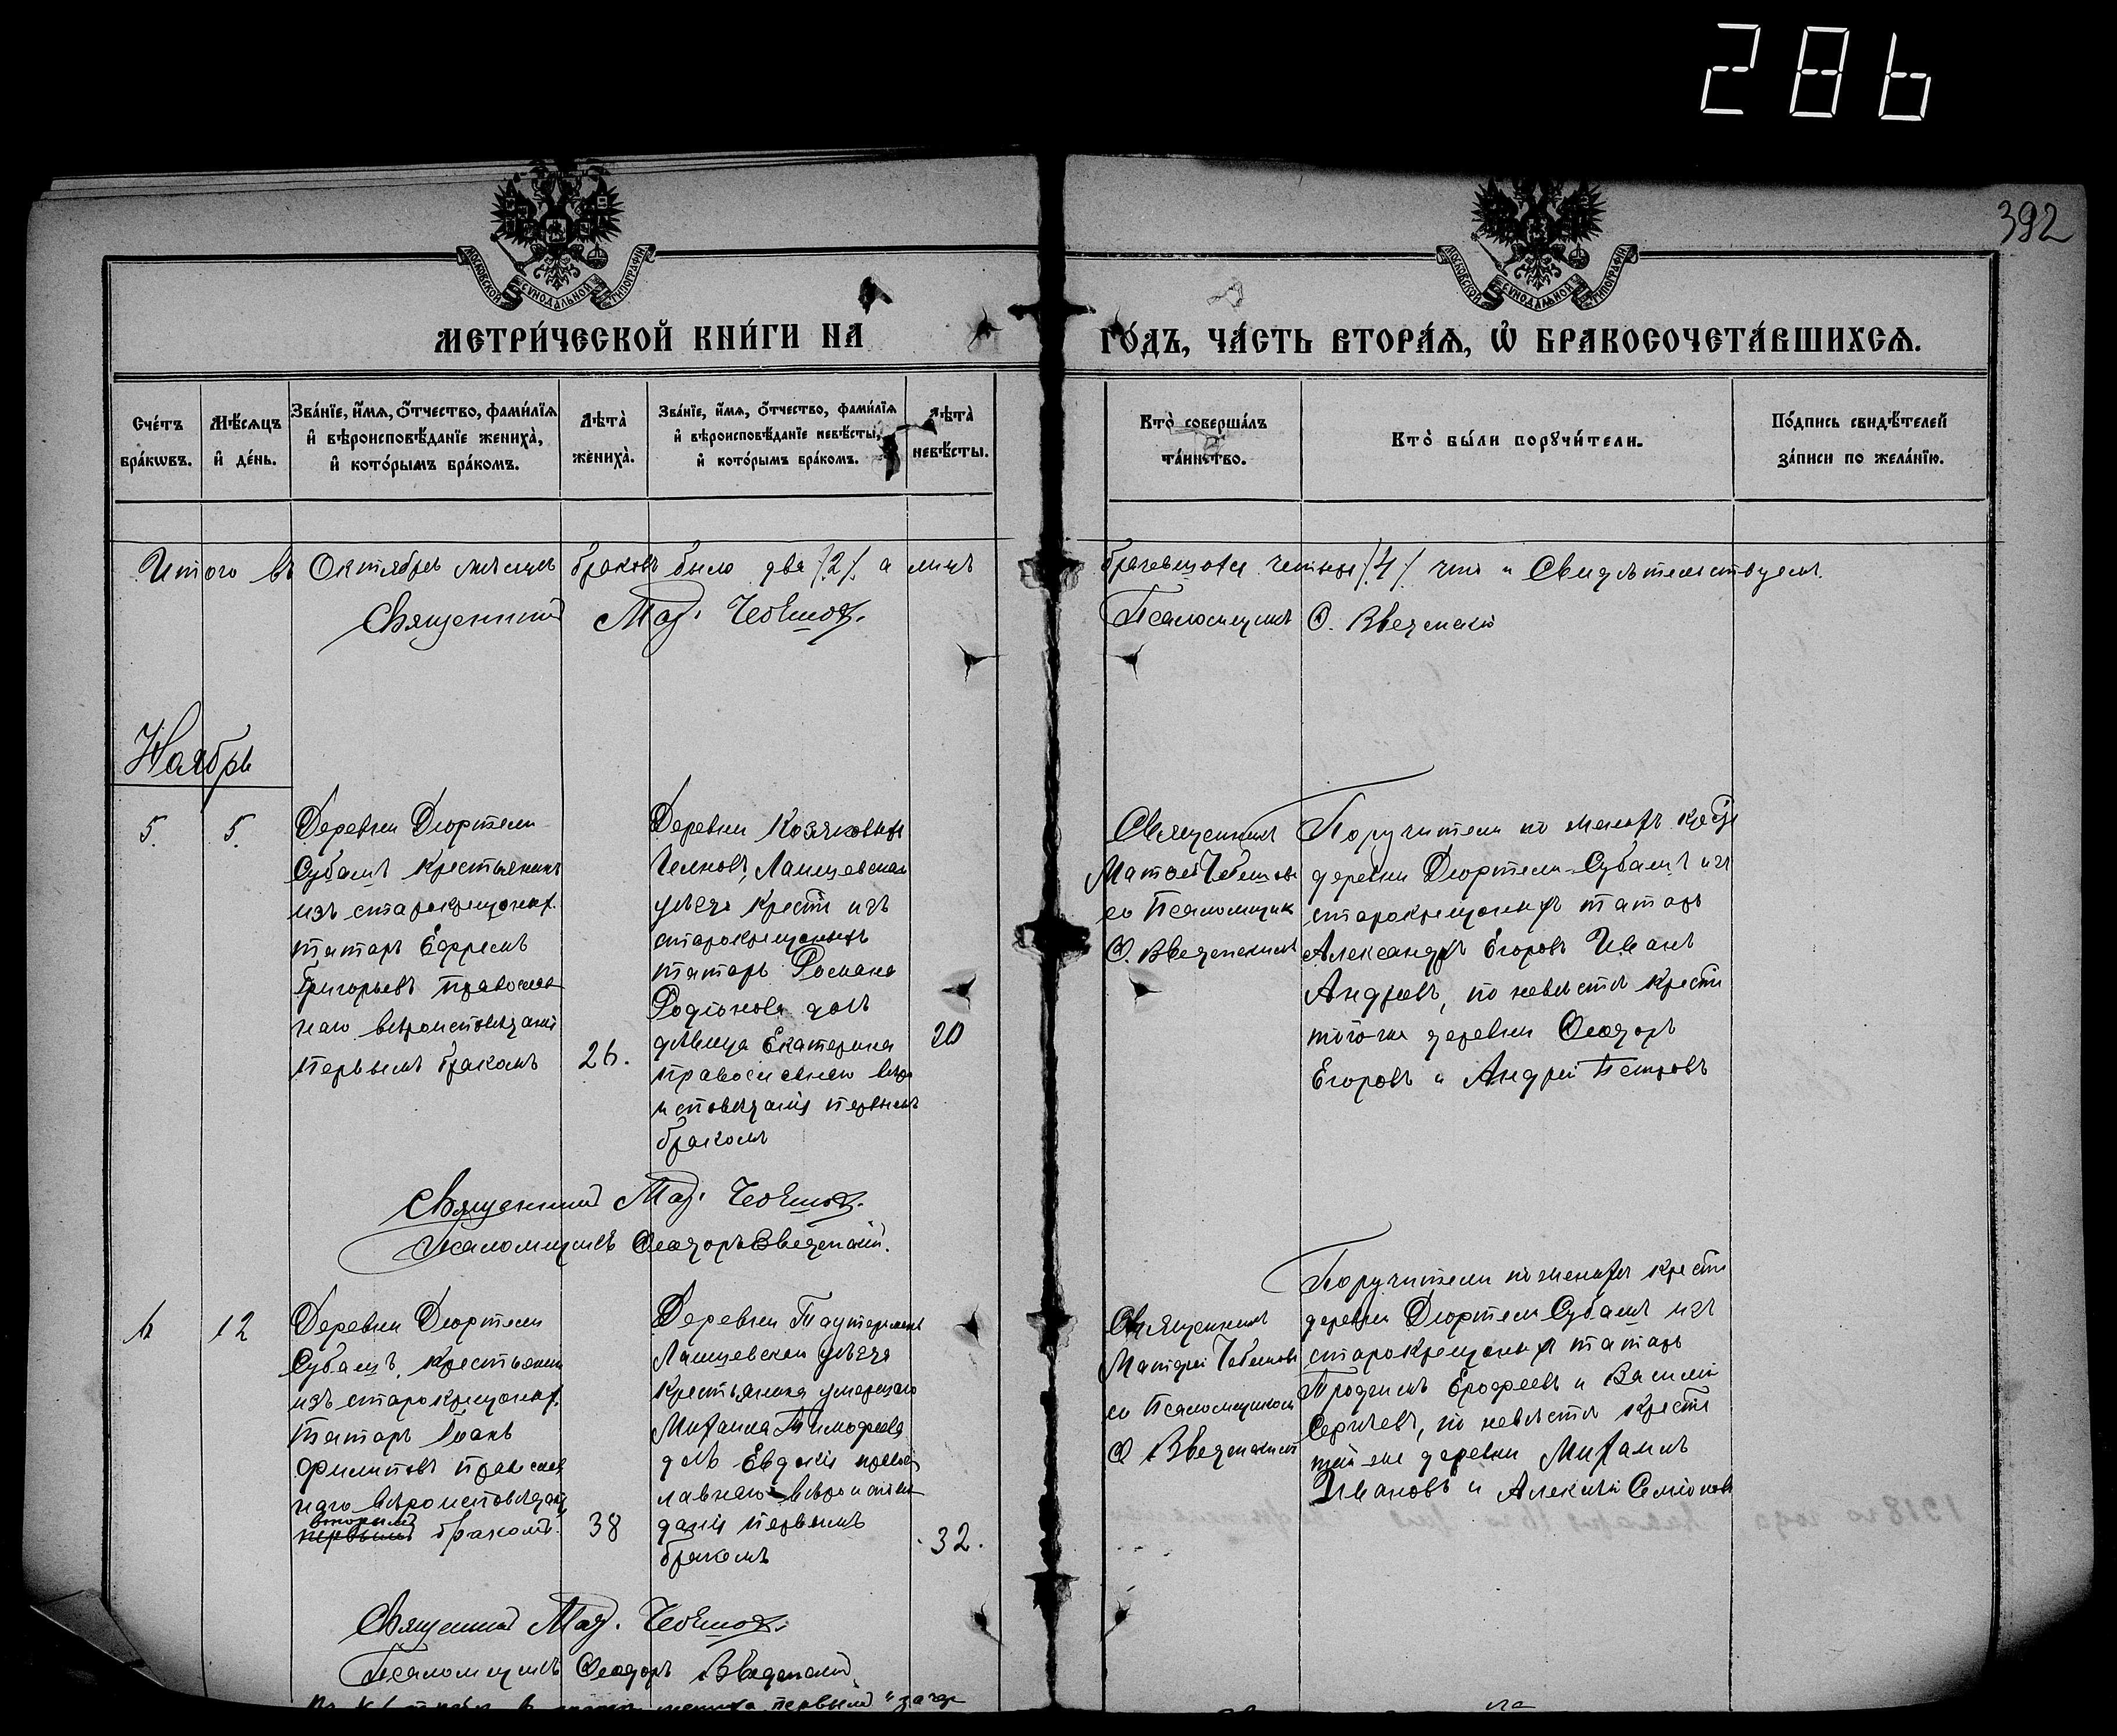 286
392
МОСКОВСКОЙ СѴНОДАЛЬНОЙ ТИПОГРАФІИ
МОСКОВСКОЙ СѴНОДАЛЬНОЙ ТИПОГРАФІИ
МЕТРИ́ЧЕСКОЙ КНИ́ГИ НА ГО́ДЪ, ЧА́СТЬ ВТОРА́Я, Ѽ БРАКОСОЧЕТА́ВШИХСЯ.
Сче́тъ
бра́кѡвъ.
Мѣ́сяцъ
и҆ де́нь.
Зва́нїе, и҆́мя, ѻ҆́тчество, фами́лїя
и҆ вѣроисповѣ́данїе жениха̀,
и҆ кото́рымъ бра́комъ.
Лѣ́та̀
жениха̀.
Зва́нїе, и҆́мя, ѻ҆́тчество, фами́лїя
и҆ вѣроисповѣ́данїе невѣ́сты,
и҆ кото́рымъ бра́комъ.
Лѣ́та̀
невѣ́сты.
Кто̀ соверша́лъ
та́инство.
Кто̀ бы́ли порꙋчи́тели.
По́дпись свидѣ́телей
за́писи по жела́нїю.
Итого въ Октябрѣ мѣсяцѣ браковъ было два /2/ а лицъ
брачившихся четыре /4/ что и Свидѣтельствуемъ.
Священникъ Мат.
Псаломщикъ Ѳ. Введенскій
Ноябрь
5. 5.
Деревни Дюртели
Субашъ крестьянинъ
изъ старокрещоных.
татаръ Ефремъ
Григорьевъ православ
наго вѣроисповѣданія
первымъ бракомъ
26.
Деревни Козяковыхъ
Челновъ, Лаишевскаго
уѣзда крест. изъ
старокрещоныхъ
татаръ Романа
Родіонова дочь
дѣвица Екатерина
православнаго вѣро
исповѣданія первымъ
бракомъ
20
Священникъ
Матѳей
со Псаломщик
Ѳ. Введенскимъ
Поручители по женихѣ крест.
деревни Дюртели-Субашъ изъ
старокрещоныхъ татаръ
Александръ Егоровъ Иванъ
Андреевъ, по невѣстѣ крест.
того-же деревни Ѳеодоръ
Егоровъ и Андрей Петровъ
Священникъ Мат.
Псаломщикъ Ѳеодоръ Введенскій.
6 12
Деревни Дюртели
Субашъ, крестьянинъ
изъ старокрещоных.
татаръ Іоанъ
Филиповъ православ
наго вѣроисповѣданія
вторымъ
первымъ бракомъ.
38
Деревни
Лаишевскаго уѣзда
крестьянина умершаго
Михаила Тимофеева
дочь Евдокія право
славнаго вѣроисповѣ
данія первымъ
бракомъ
32.
Священникъ
Матѳей
со Псаломщикомъ
Ѳ Введенскимъ
Поручители по женихѣ крест.
деревни Дюртели Субашъ изъ
старокрещоныхъ татаръ
Ерофеевъ и Василій
Сергѣевъ, по невѣстѣ крест.
той-же деревни Михаилъ
Ивановъ и Алексѣй Семіоновъ
Священникъ Мат.
Псаломщикъ Ѳеодоръ Введенскій
первымъ